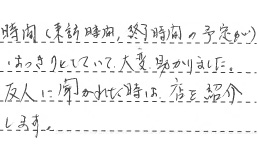 時間（来訪時間，終了時間の予定が）
はっきりとしていて、大変、助かりました。
友人に聞かれた時は、店を紹介
します。